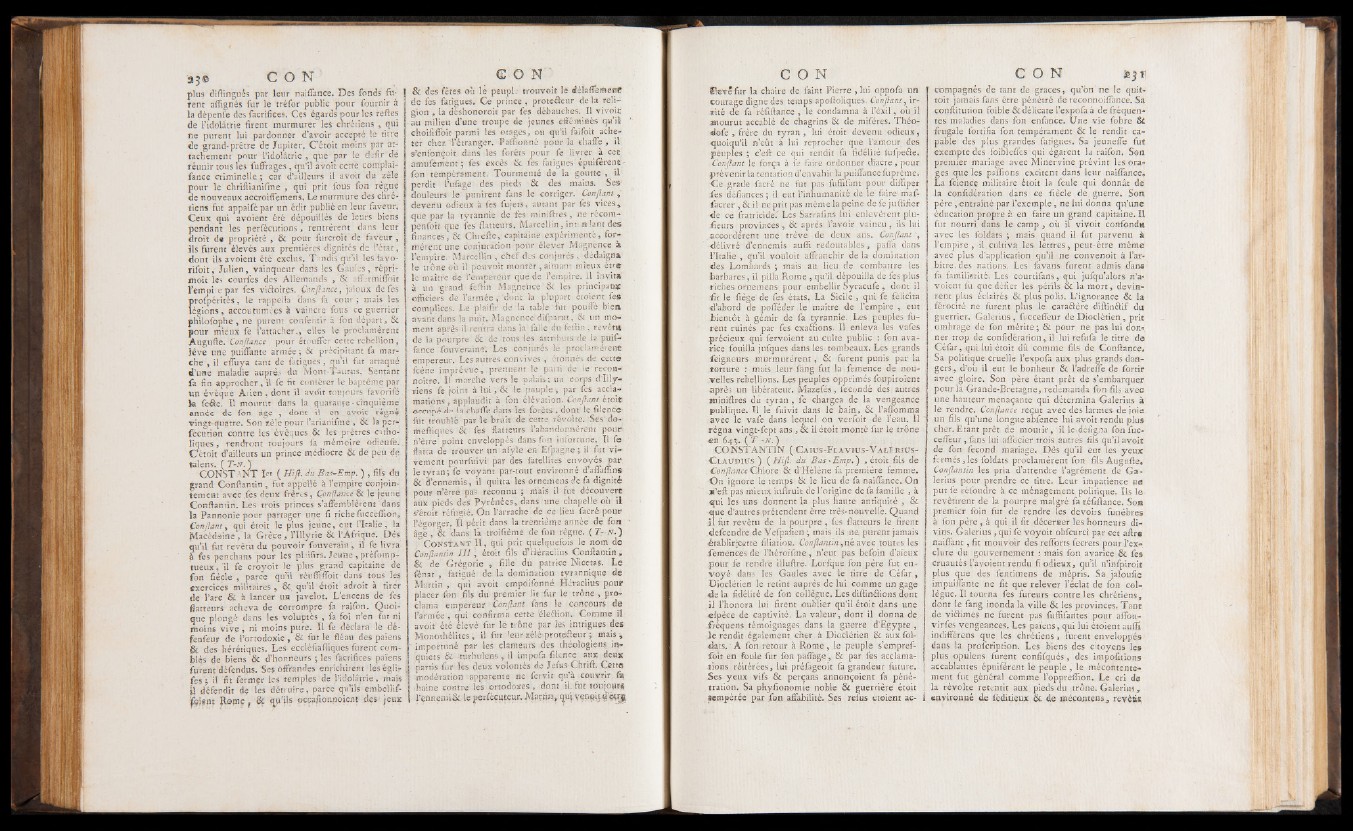 230 CON
plus distingués par leur naissance. Des fonds fu-
rent assignés sur le trésor public pour fournir à
la dépense des sacrifices. Ces égards pour les restes
de l'idolâtrie firent murmurer les chrétiens, qui
ne purent lui pardonner d'avoir accepté le titre
de grand-prêtre de Jupiter. C'étoit moins par at-
tachement pour l'idolâtrie, que par le desir de
réunir tous les suffrages, qu'il avoit cette complai-
sance criminelle ; car d'ailleurs il avoit du zèle
pour le christianisme, qui prit sous son règne
de nouveaux accroissemens. Le murmure des chré-
tiens fut appaisé par un édit publié en leur faveur.
Ceux qui avoient été dépouillés de leurs biens
pendant les persécutions, rentrèrent dans leur
droit de propriété, & pour surcroît de faveur,
ils furent élevés aux premières dignités de l'état,
dont ils avoient été exclus. Tandis qu'il les favo-
risoit, Julien, vainqueur dans les Gaules, répri-
moit les courses des Allemands, & affermissoit
l'empire par ses victoires. Constance, jaloux de ses
prospérités, le rappella dans sa cour ; mais les
légions, accoutumées à vaincre sous ce guerrier
philosophe, ne purent consentir à son départ, &
pour mieux se l'attacher, elles le proclamèrent
Auguste. Constance pour étouffer cette rebellion,
lève une puissante armée ; & précipitant sa mar-
che, il essuya tant de fatigues, qu'il fut attaqué
d'une maladie auprès du Mont-Taurus. Sentant
sa fin approcher, il se fit conférer le baptême par
un évêque Arien, dont il avoit toujours favorisé
la secte. Il mourut dans la quarante-cinquième
année de son age, dont il en avoit régné
vingt-quatre. Son zèle pour l'arianisme, & la per-
sécution contre les évêques & les prêtres catho-
liques, rendront toujours sa mémoire odieuse.
C'étoit d'ailleurs un prince médiocre & de peu de
talens. ( T-N. )
CONSTANT Ier ( Hist. du Bas-Emp. ), fils du
grand Constantin, fut appellé à l'empire conjoin-
tement avec ses deux frères, Constance & le jeune
Constantin. Les trois princes s'assemblèrent dans
la Pannonie pour partager une si riche succession,
Constant, qui étoit le plus jeune, eut l'Italie, la
Macédoine, la Grèce, l'Illyrie & l'Afrique. Dès
qu'il fut revêtu du pouvoir souverain, il se livra
à ses penchans pour les plaisirs. Jeune, présomp-
tueux, il se croyoit le plus grand capitaine de
son siècle, parce qu'il réussissoit dans tous les
exercices militaires, & qu'il étoit adroit à tirer
de l'arc & à lancer un javelot. L'encens de ses
flatteurs acheva de corrompre sa raison. Quoi-
que plongé dans les voluptés, sa foi n'en fut ni
moins vive, ni moins pure. Il se déclara le dé-
fenseur de l'ortodoxie, & fut le fléau des païens
& des hérétiques. Les ecclésiastiques furent com-
blés de biens & d'honneurs ; les sacrifices païens
furent défendus. Ses offrandes enrichirent les égli-
ses ; il fit fermer les temples de l'idolâtrie, mais
il défendit de les détruire, parce qu'ils embellis-
soient Rome, & qu'ils occasionnoient des jeux
CON
& des fêtes où le peuple trouvoit le délassement
de ses fatigues. Ce prince, protecteur de la reli-
gion, la déshonoroit par ses débauches. Il vivoit
au milieu d'une troupe de jeunes efféminés qu'il
choisissoit parmi les otages, ou qu'il faisoit ache-
ter chez l'étranger. Passionné pour la chasse, il
s'enfonçoit dans les forêts pour se livrer à cet
amusement ; ses excès & ses fatigues épuisèrent
son tempérament. Tourmenté de la goutte, il
perdit l'usage des pieds & des mains. Ses
douleurs le punirent sans le corriger. Constant,
devenu odieux à ses sujets, autant par ses vices,
que par la tyrannie de ses ministres, ne récom-
pensoit que ses flatteurs. Marcellin, intendant des
finances, & Chreste, capitaine expérimenté, for-
mèrent une conjuration pour élever Magnence à
l'empire. Marcellin, chef des conjurés, dédaigna
le trône où il pouvoit monter, aimant mieux être
le maître de l'empereur que de l'empire. Il invita
à un grand festin Magnence & les principaux
officiers de l'armée, dont la plupart étoient ses
complices. Le plaisir de la table fut poussé bien
avant dans la nuit. Magnence disparut, & un mo-
ment après il rentra dans la salle du festin, revêtu
de la pourpre & de tous les attributs de la puis-
sance souveraine. Les conjurés le proclamèrent
empereur. Les autres convives, étonnés de cette
scène imprévue, prennent le parti de le recon-
noître. Il marche vers le palais ; un corps d'Illy-
riens se joint à lui, & le peuple, par ses accla-
mations, applaudit à son élévation. Constant étoit
occupé de la chasse dans les forêts, dont le silence
fut troublé par le bruit de cette révolte. Ses do-
mestiques & ses flatteurs l'abandonnèrent pour
n'être point enveloppés dans son infortune. Il se
flatta de trouver un asyle en Espagne ; il fut vi-
vement poursuivi par des satellites envoyés par
le tyran ; se voyant par-tout environné d'assassins
& d'ennemis, il quitta les ornemens de sa dignité
pour n'être pas reconnu ; mais il fut découvert
aux pieds des Pyrénées, dans une chapelle où il
s'étoit réfugié. On l'arrache de ce lieu sacré pour
l'égorger. Il périt dans la trentième année de son
âge, & dans la troisième de son règne. ( T-N. )
CONSTANT II, qui prit quelquefois le nom de
Constantin III, étoit fils d'Héraclius Constantin,
& de Grégorie, fille du patrice Nicetas. Le
sénat, fatigué de la domination tyrannique de
Martin, qui avoit empoisonné Héraclius pour
placer son fils du premier lit sur le trône, pro-
clama empereur Constant sans le concours de
l'armée, qui confirma cette élection. Comme il
avoit été élevé sur le trône par les intrigues des
Monothélites, il fut leur zélé protecteur ; mais,
importuné par les clameurs des théologiens in-
quiets & turbulens, il imposa silence aux deux
partis sur les deux volontés de Jésus-Christ. Cette
modération apparente ne servit qu'à couvrir sa
haine contre les ortodoxes, dont il fut toujours
l'ennemi & le persécuteur. Martin, qui venoit d'être
CON
élevé sur la chaire de saint Pierre, lui opposa un
courage digne des temps apostoliques. Constant, ir-
rité de sa résistance, le condamna à l'exil, où il
mourut accablé de chagrins & de misères. Théo-
dose, frère du tyran, lui étoit devenu odieux,
quoiqu'il n'eût à lui reprocher que l'amour des
peuples ; c'est ce qui rendit sa fidélité suspecte.
Constant le força à se faire ordonner diacre, pour
prévenir la tentation d'envahir la puissance suprême.
Ce grade sacré ne fut pas suffisant pour dissiper
ses défiances ; il eut l'inhumanité de le faire mas-
sacrer, & il ne prit pas même la peine de se justifier
de ce fratricide. Les Sarrasins lui enlevèrent plu-
sieurs provinces, & après l'avoir vaincu, ils lui
accordèrent une trève de deux ans. Constant,
délivré d'ennemis aussi redoutables, passa dans
l'Italie, qu'il vouloit affranchir de la domination
des Lombards ; mais au lieu de combattre les
barbares, il pilla Rome, qu'il dépouilla de ses plus
riches ornemens pour embellir Syracuse, dont il
fit le siège de ses états. La Sicile, qui se félicita
d'abord de posséder le maître de l'empire, eut
bientôt à gémir de sa tyrannie. Les peuples fu-
rent ruinés par ses exactions. Il enleva les vases
précieux qui servoient au culte public : son ava-
rice fouilla jusques dans les tombeaux. Les grands
seigneurs murmurèrent, & furent punis par la
torture : mais leur sang fut la semence de nou-
velles rebellions. Les peuples opprimés soupiroient
après un libérateur. Mazeses, secondé des autres
ministres du tyran, se chargea de la vengeance
publique. Il le suivit dans le bain, & l'assomma
avec le vase dans lequel on versoit de l'eau. Il
régna vingt-sept ans, & il étoit monté sur le trône
en 643. ( T-N. )
CONSTANTIN ( CAIUS-FLAVIUS-VALERIUS-
CLAUDIUS ) ( Hist. du Bas-Emp. ), étoit fils de
Constance Chlore & d'Hélène sa première femme.
On ignore le temps & le lieu de sa naissance. On
n'est pas mieux instruit de l'origine de sa famille, à
qui les uns donnent la plus haute antiquité, &
que d'autres prétendent être très-nouvelle. Quand
il fut revêtu de la pourpre, ses flatteurs le firent
descendre de Vespasien ; mais ils ne purent jamais
établir cette filiation. Constantin, né avec toutes les
semences de l'héroïsme, n'eut pas besoin d'aïeux
pour se rendre illustre. Lorsque son père fut en-
voyé dans les Gaules avec le titre de César,
Dioclétien le retint auprès de lui comme un gage
de la fidélité de son collègue. Les distinctions dont
il l'honora lui firent oublier qu'il étoit dans une
espèce de captivité. La valeur, dont il donna de
fréquens témoignages dans la guerre d'Egypte,
le rendit également cher à Dioclétien & aux sol-
dats. A son retour à Rome, le peuple s'empres-
soit en foule sur son passage, & par ses acclama-
tions réitérées, lui présageoit sa grandeur future.
Ses yeux vifs & perçans annonçoient sa péné-
tration. Sa physionomie noble & guerrière étoit
tempérée par son affabilité. Ses refus étoient ac-
CON 231
compagnés de tant de graces, qu'on ne le quit-
toit jamais sans être pénétré de reconnoissance. Sa
constitution foible & délicate l'exposa à de fréquen-
tes maladies dans son enfance. Une vie sobre &
frugale fortifia son tempérament & le rendit ca-
pable des plus grandes fatigues. Sa jeunesse fut
exempte des foiblesses qui égarent la raison. Son
premier mariage avec Minervine prévint les ora-
ges que les passions excitent dans leur naissance.
La science militaire étoit la seule qui donnât de
la considération dans ce siècle de guerre. Son
père, entraîné par l'exemple, ne lui donna qu'une
éducation propre à en faire un grand capitaine. Il
fut nourri dans le camp, où il vivoit confondu
avec les soldats ; mais quand il fut parvenu à
l'empire, il cultiva les lettres, peut-être même
avec plus d'application qu'il ne convenoit à l'ar-
bitre des nations. Les savans furent admis dans
sa familiarité. Les courtisans, qui jusqu'alors n'a-
voient su que défier les périls & la mort, devin-
rent plus éclairés & plus polis. L'ignorance & la
férocité ne furent plus le caractère distinctif du
guerrier. Galerius, successeur de Dioclétien, prit
ombrage de son mérite ; & pour ne pas lui don-
ner trop de considération, il lui refusa le titre de
César, qui lui étoit dû comme fils de Constance.
Sa politique cruelle l'exposa aux plus grands dan-
gers, d'où il eut le bonheur & l'adresse de sortir
avec gloire. Son père étant prêt de s'embarquer
pour la Grande-Bretagne, redemanda son fils avec
une hauteur menaçante qui détermina Galerius à
le rendre. Constance reçut avec des larmes de joie
un fils qu'une longue absence lui avoit rendu plus
cher. Etant prêt de mourir, il le désigna son suc-
cesseur, sans lui associer trois autres fils qu'il avoit
de son second mariage. Dès qu'il eut les yeux
fermés, les soldats proclamèrent son fils Auguste.
Constantin les pria d'attendre l'agrément de Ga-
lerius pour prendre ce titre. Leur impatience ne
put se résoudre à ce ménagement politique. Ils le
revêtirent de la pourpre malgré sa résistance. Son
premier soin fut de rendre les devoirs funèbres
à son père, à qui il fit décerner les honneurs di-
vins. Galerius, qui se voyoit obscurci par cet astre
naissant, fit mouvoir des ressorts secrets pour l'ex-
clure du gouvernement : mais son avarice & ses
cruautés l'avoient rendu si odieux, qu'il n'inspiroit
plus que des sentimens de mépris. Sa jalousie
impuissante ne fit que relever l'éclat de son col-
lègue. Il tourna ses fureurs contre les chrétiens,
dont le sang inonda la ville & les provinces. Tant
de victimes ne furent pas suffisantes pour assou-
vir ses vengeances. Les païens, qui lui étoient aussi
indifférens que les chrétiens, furent enveloppés
dans la proscription. Les biens des citoyens les
plus opulens furent confisqués, des impositions
accablantes épuisèrent le peuple, le mécontente-
ment fut général comme l'oppression. Le cri de
la révolte retentit aux pieds du trône. Galerius,
environné de séditieux & de mécontens, revêtit